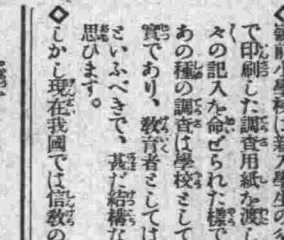 で印刷した調査用紙を渡し
々の記入を命ぜられた樣で
あの種の調査は學校として
實であり、教育者としては
といふべきで、甚だ結構な
思ひます。
◇しかし現在我國では信教の